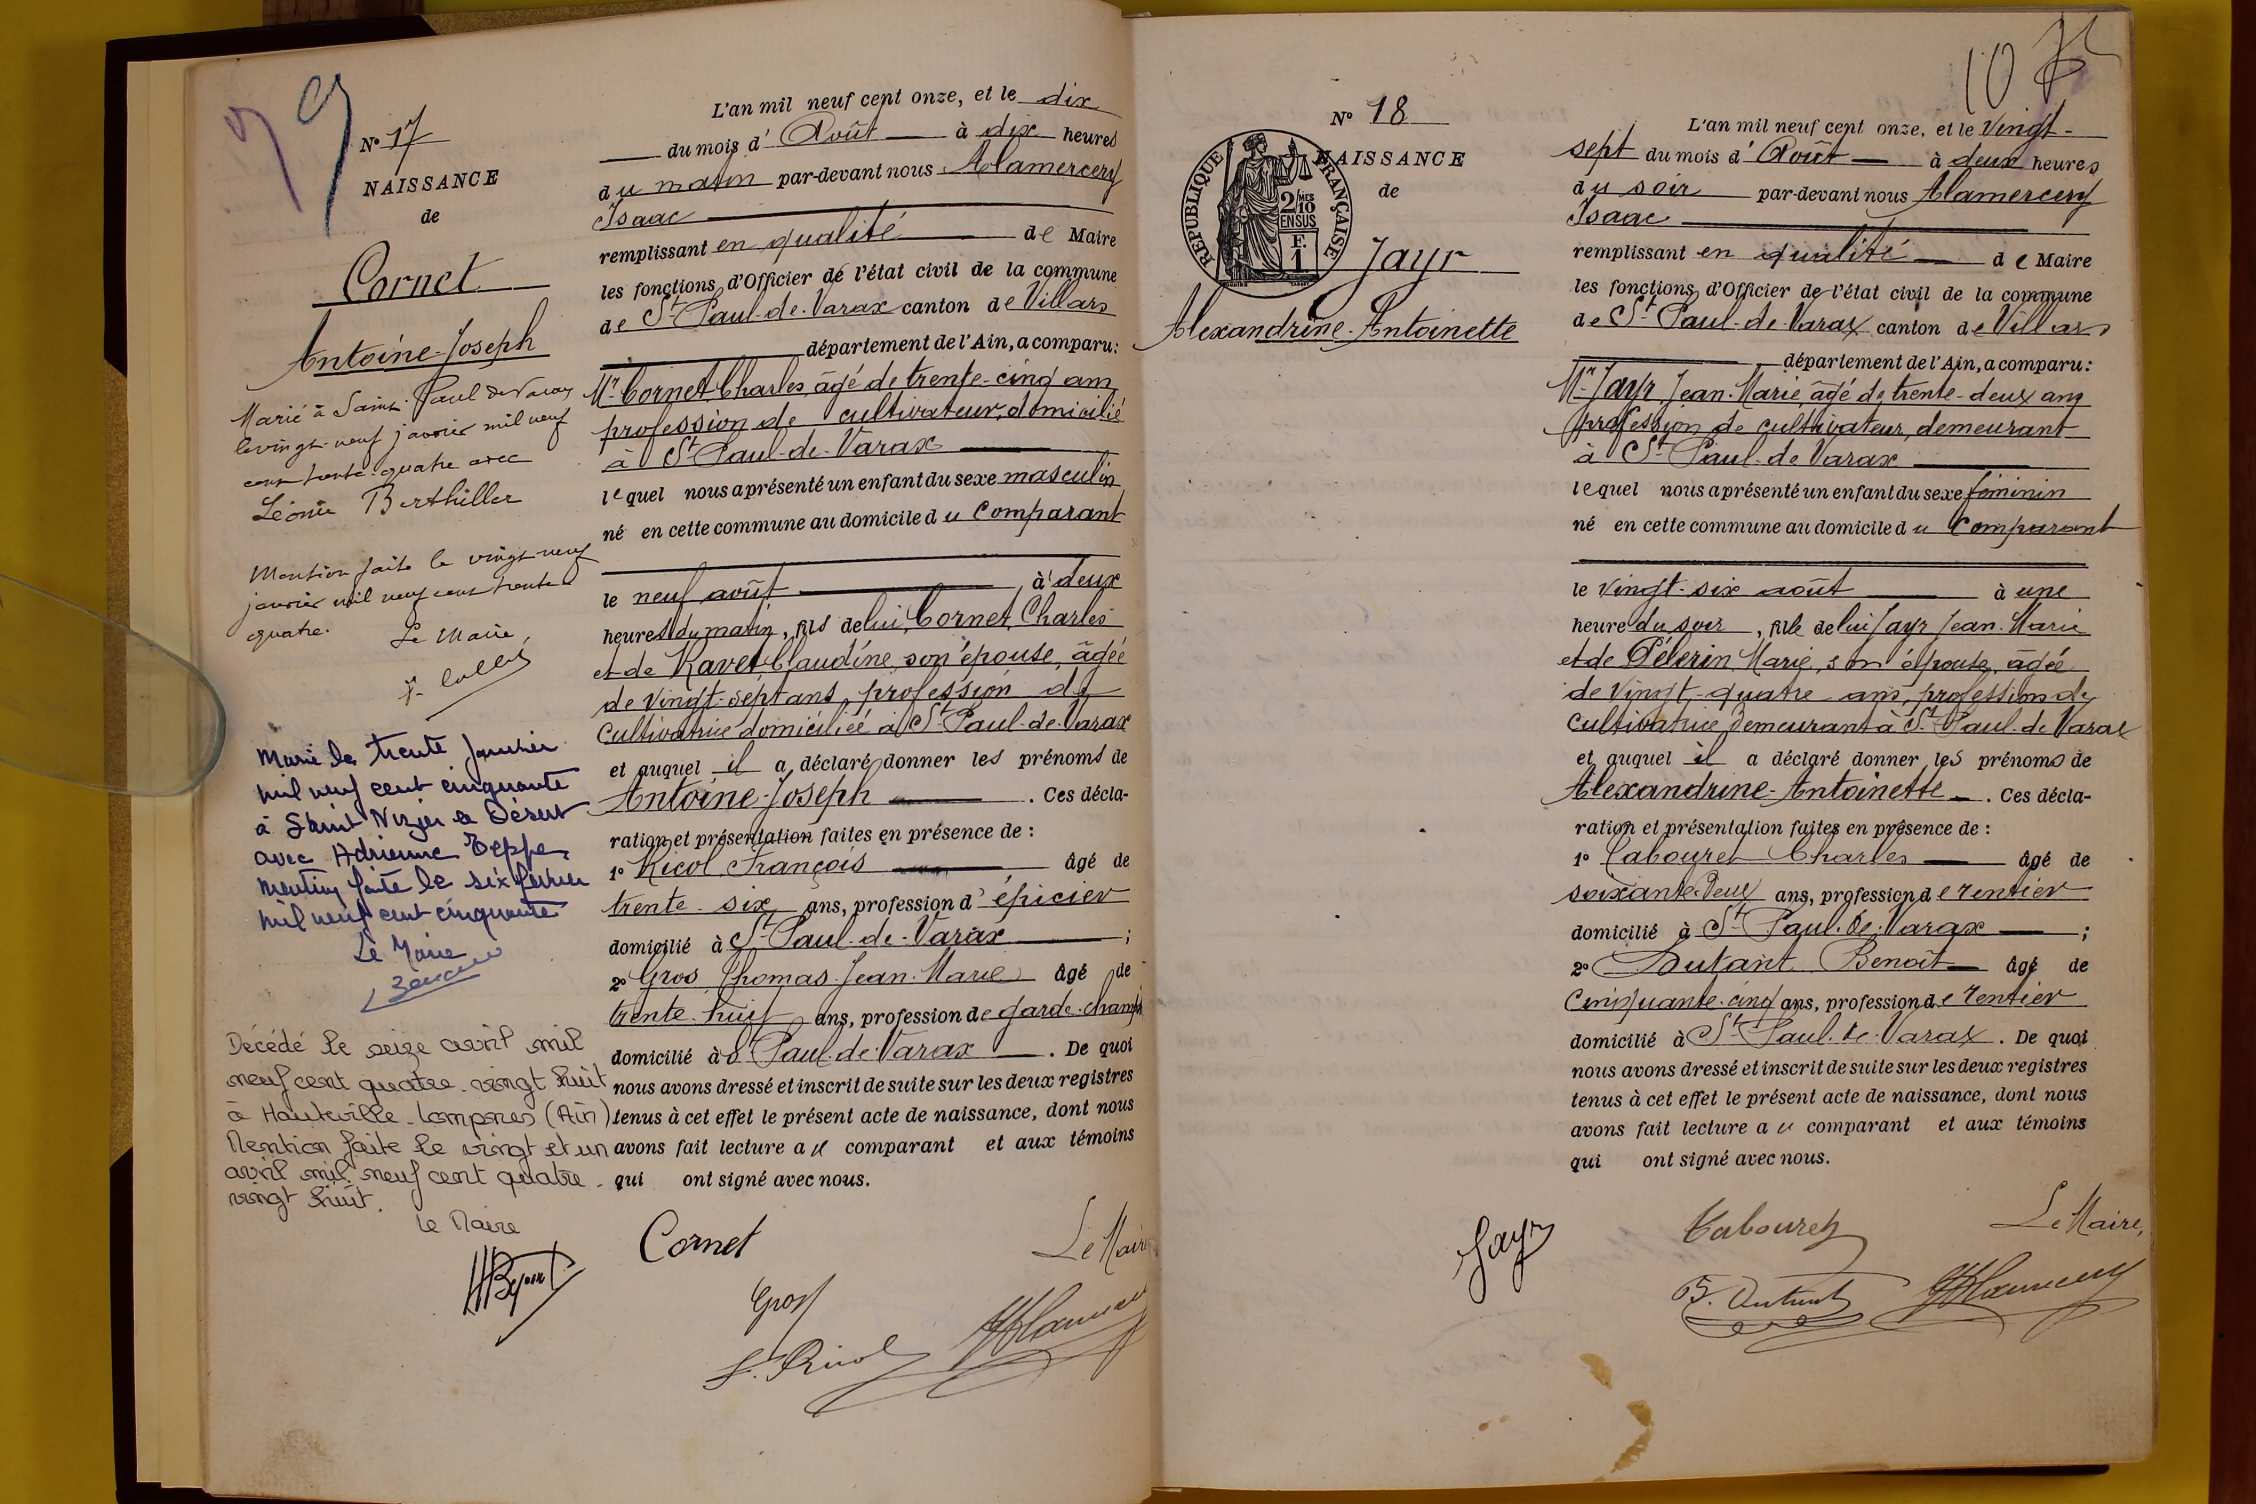 9
9
N° 17
NAISSANCE
de
Cornet
Antoine-Joseph
Marié à Saint-Paul de Varax
le vingt-neuf janvier mil neuf
cent trente-quatre avec
Léonie Berthiller
Mention faite le vingt-neuf
janvier mil neuf cent trente
quatre.
Le Maire,
Marié le trente Janvier
mil neuf cent cinquante
à Saint Nizier le Désert
avec Adrienne Teppe,
mention faite le six février
mil neuf cent cinquante
Le Maire
Décédé le seize avril mil
neuf cent quatre-vingt huit
à Hauteville-Lompnes (Ain)
Mention faite le vingt et un
avril mil neuf cent quatre-
vingt huit.
Le Maire
L'an mil neuf cent onze, et le dix
du mois d'Août à dix heures
du matin par-devant nous Alamercery
Isaac
remplissant en qualité de Maire
les fonctions d'Officier de l'état civil de la commune
de St-Paul-de-Varax canton de Villars
département de l'Ain, a comparu:
Mr Cornet Charles, âgé de trente-cinq ans
profession de cultivateur, domicilié
à St-Paul-de-Varax
lequel nous a présenté un enfant du sexe masculin
né en cette commune au domicile du Comparant
le neuf août à deux
heures du matin, fils de lui, Cornet Charles
et de Ravet Claudine, son épouse, âgée
de vingt-sept ans, profession de
cultivatrice domiciliée à St-Paul-de-Varax
et auquel il a déclaré donner les prénoms de
Antoine-Joseph. Ces décla-
ration et présentation faites en présence de :
1° Ricol François âgé de
trente-six ans, profession d'épicier
domicilié à St-Paul-de-Varax ;
2° Gros Thomas Jean-Marie âgé de
trente-huit ans, profession de garde-champ
domicilié à St Paul-de-Varax. De quoi
nous avons dressé et inscrit de suite sur les deux registres
tenus à cet effet le présent acte de naissance, dont nous
avons fait lecture au comparant et aux témoins
qui ont signé avec nous.
Cornet
Le Maire
Gros
F. Ricol
10
N° 18
NAISSANCE
de
RÉPUBLIQUE FRANÇAISE
2/10
EN SUS
F.
1
Jayr
Alexandrine-Antoinette
L'an mil neuf cent onze, et le Vingt-
sept du mois d'Août à deux heures
du soir par-devant nous Alamercery
Isaac
remplissant en qualité de Maire
les fonctions d'Officier de l'état civil de la commune
de St-Paul-de-Varax canton de Villars
département de l'Ain, a comparu:
Mr Jayr Jean-Marie âgé de trente-deux ans
profession de cultivateur, demeurant
à St-Paul-de Varax
lequel nous a présenté un enfant du sexe féminin
né en cette commune au domicile du Comparant
le Vingt-six août à une
heure du soir, fille de lui Jayr Jean-Marie
et de Pélerin Marie, son épouse, âgée
de Vingt-quatre ans, profession de
cultivatrice demeurant à St-Paul-de Varax
et auquel il a déclaré donner les prénoms de
Alexandrine-Antoinette. Ces décla-
ration et présentation faites en présence de :
1° Tabouret Charles âgé de
soixante-deux ans, profession de rentier
domicilié à St-Paul-de-Varax ;
2° Dutant Benoît âgé de
Cinquante-cinq ans, profession de rentier
domicilié à St-Paul-de-Varax. De quoi
nous avons dressé et inscrit de suite sur les deux registres
tenus à cet effet le présent acte de naissance, dont nous
avons fait lecture au comparant et aux témoins
qui ont signé avec nous.
Jayr
Tabouret
Le Maire,
B. Dutant